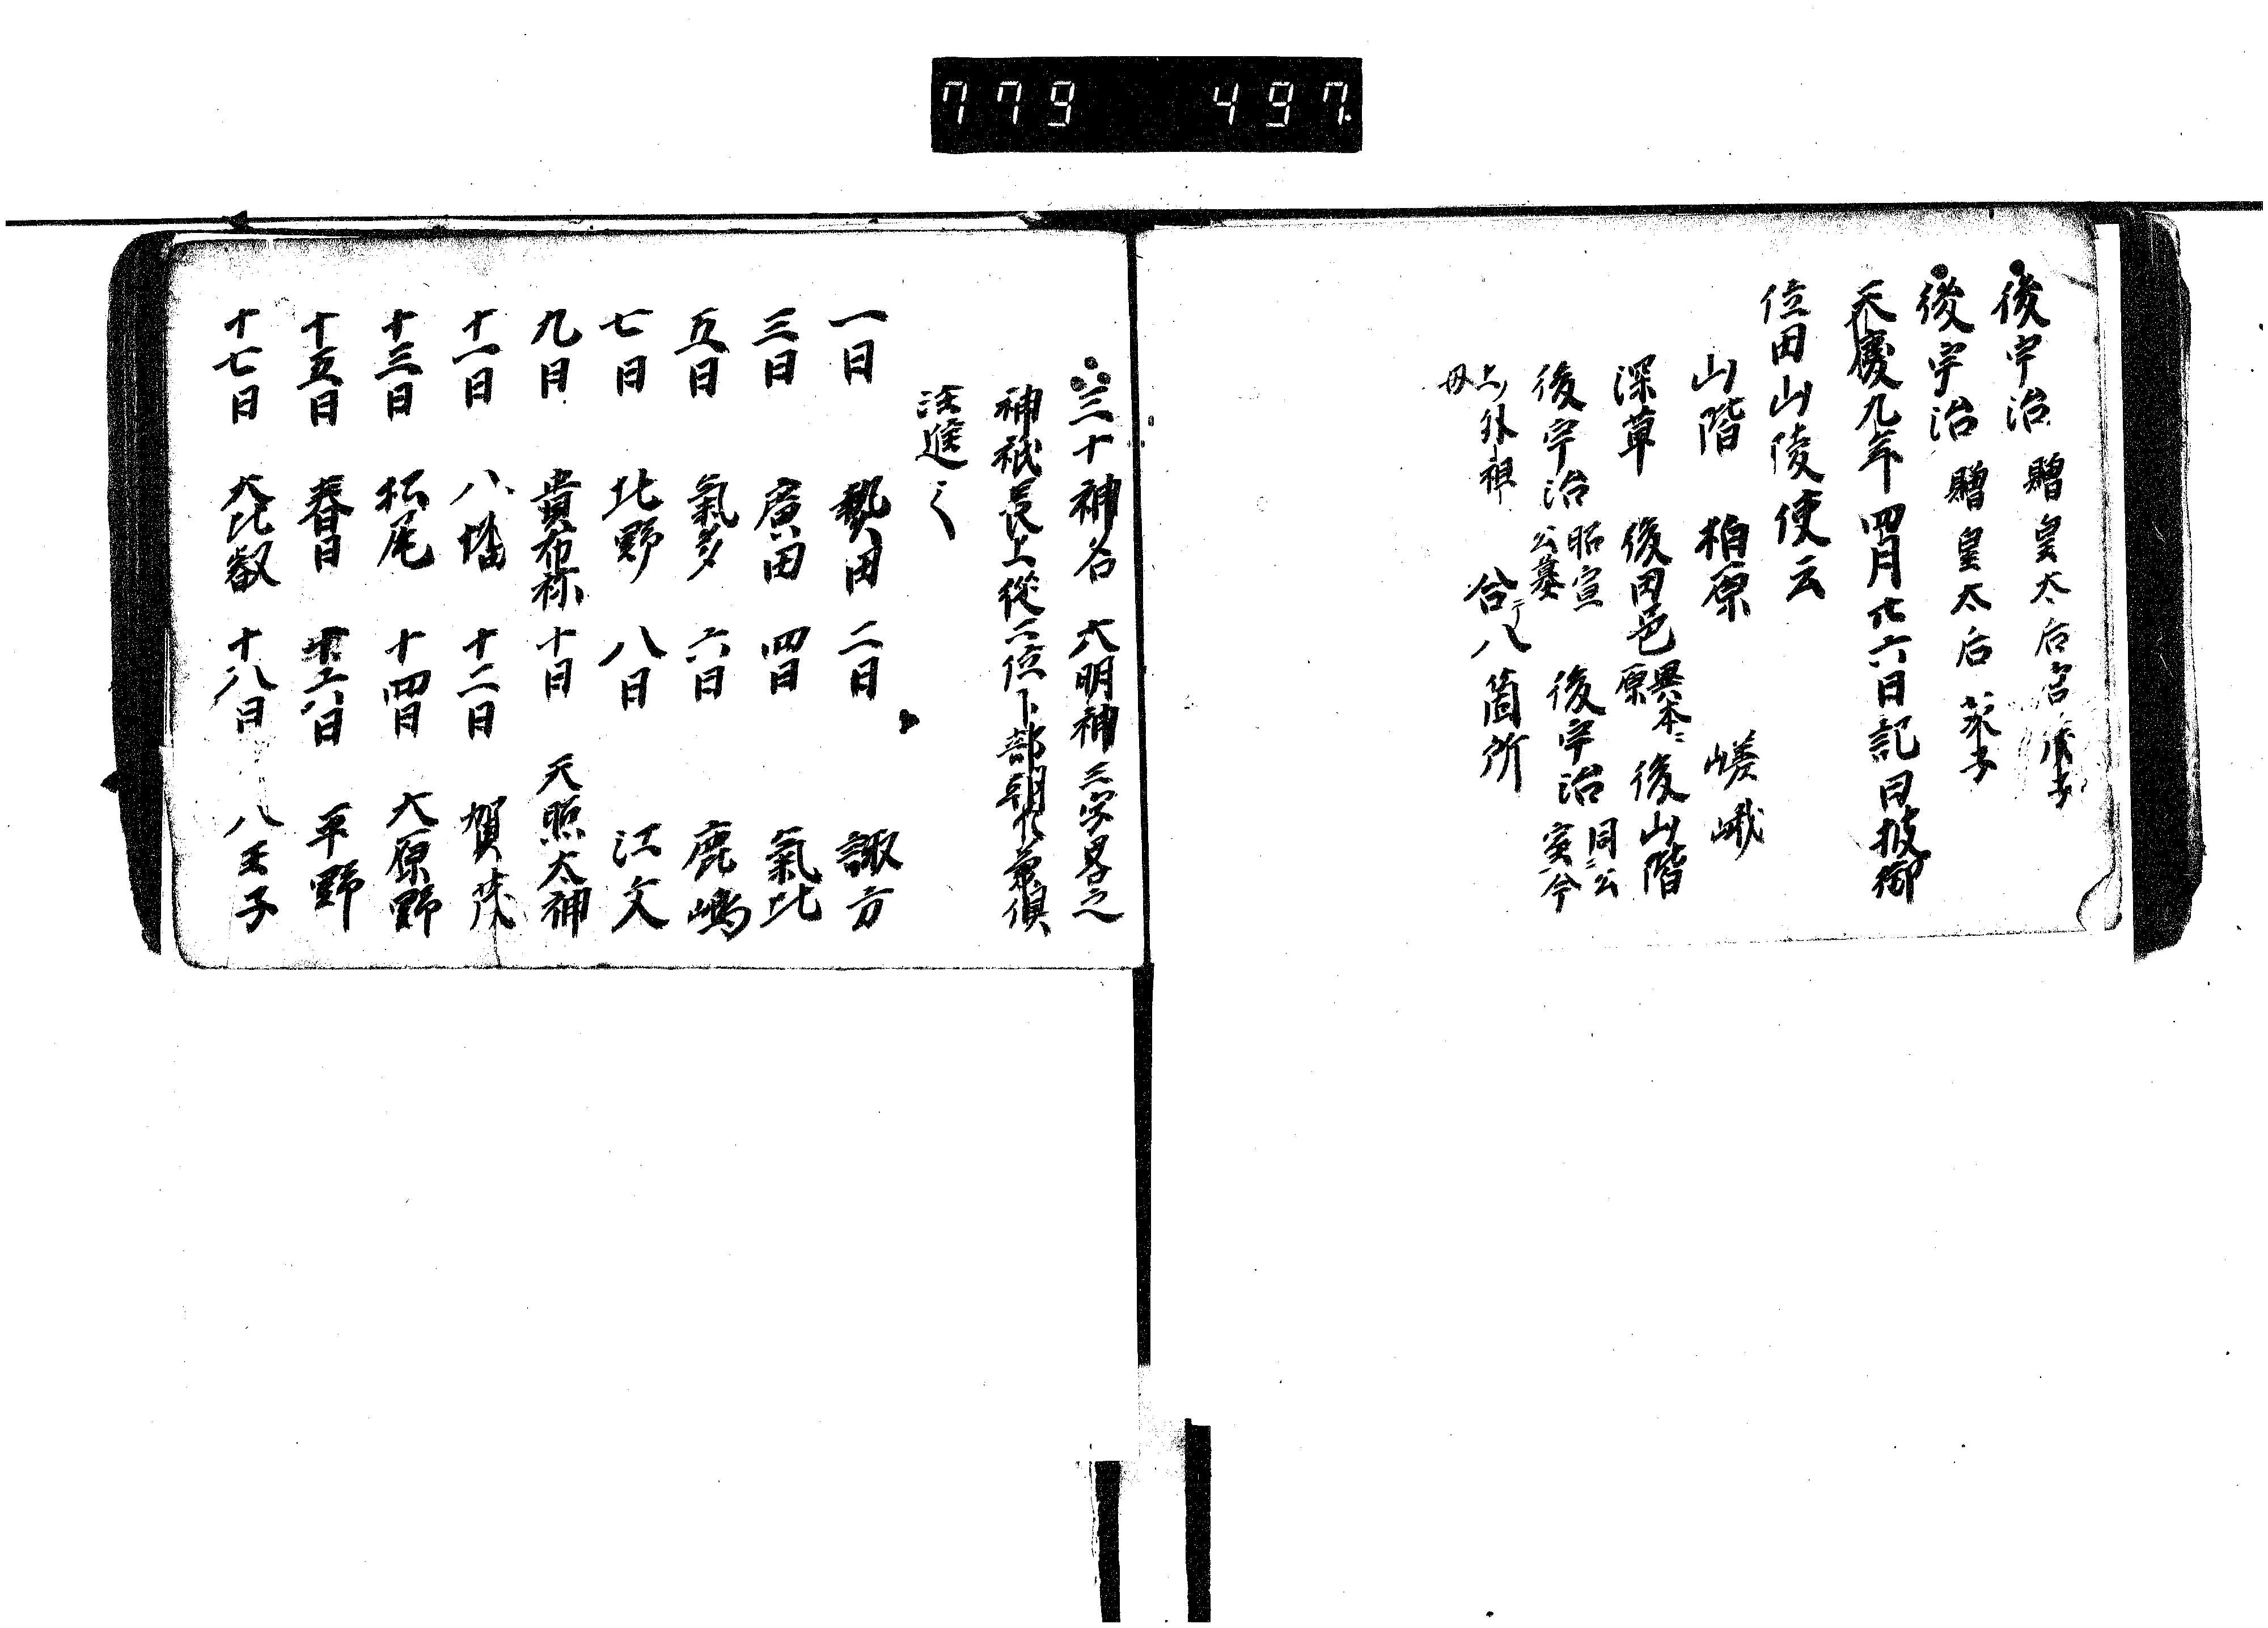 779 497
後宇治 贈皇太后宮
後宇治 贈皇太后 茂子
天慶九年四月廿六日記曰被御
位田山陵使云
山階 柏原 嵯峨
深草 後田邑 異本ニ原 後山階
後宇治 昭宣公墓 後宇治 同公室今
上ノ外祖母 合テ八箇所
三十神名 大明神三字畧之
神祇長上從二位卜部朝臣兼俱
注進之
一日 熱田 二日 諏方
三日 廣田 四日 氣比
五日 氣多 六日 鹿嶋
七日 北野 八日 江文
九日 貴布祢 十日 天照太神
十一日 八幡 十二日 賀茂
十三日 松尾 十四日 大原野
十五日 春日 十六日 平野
十七日 大比叡 十八日 八王子